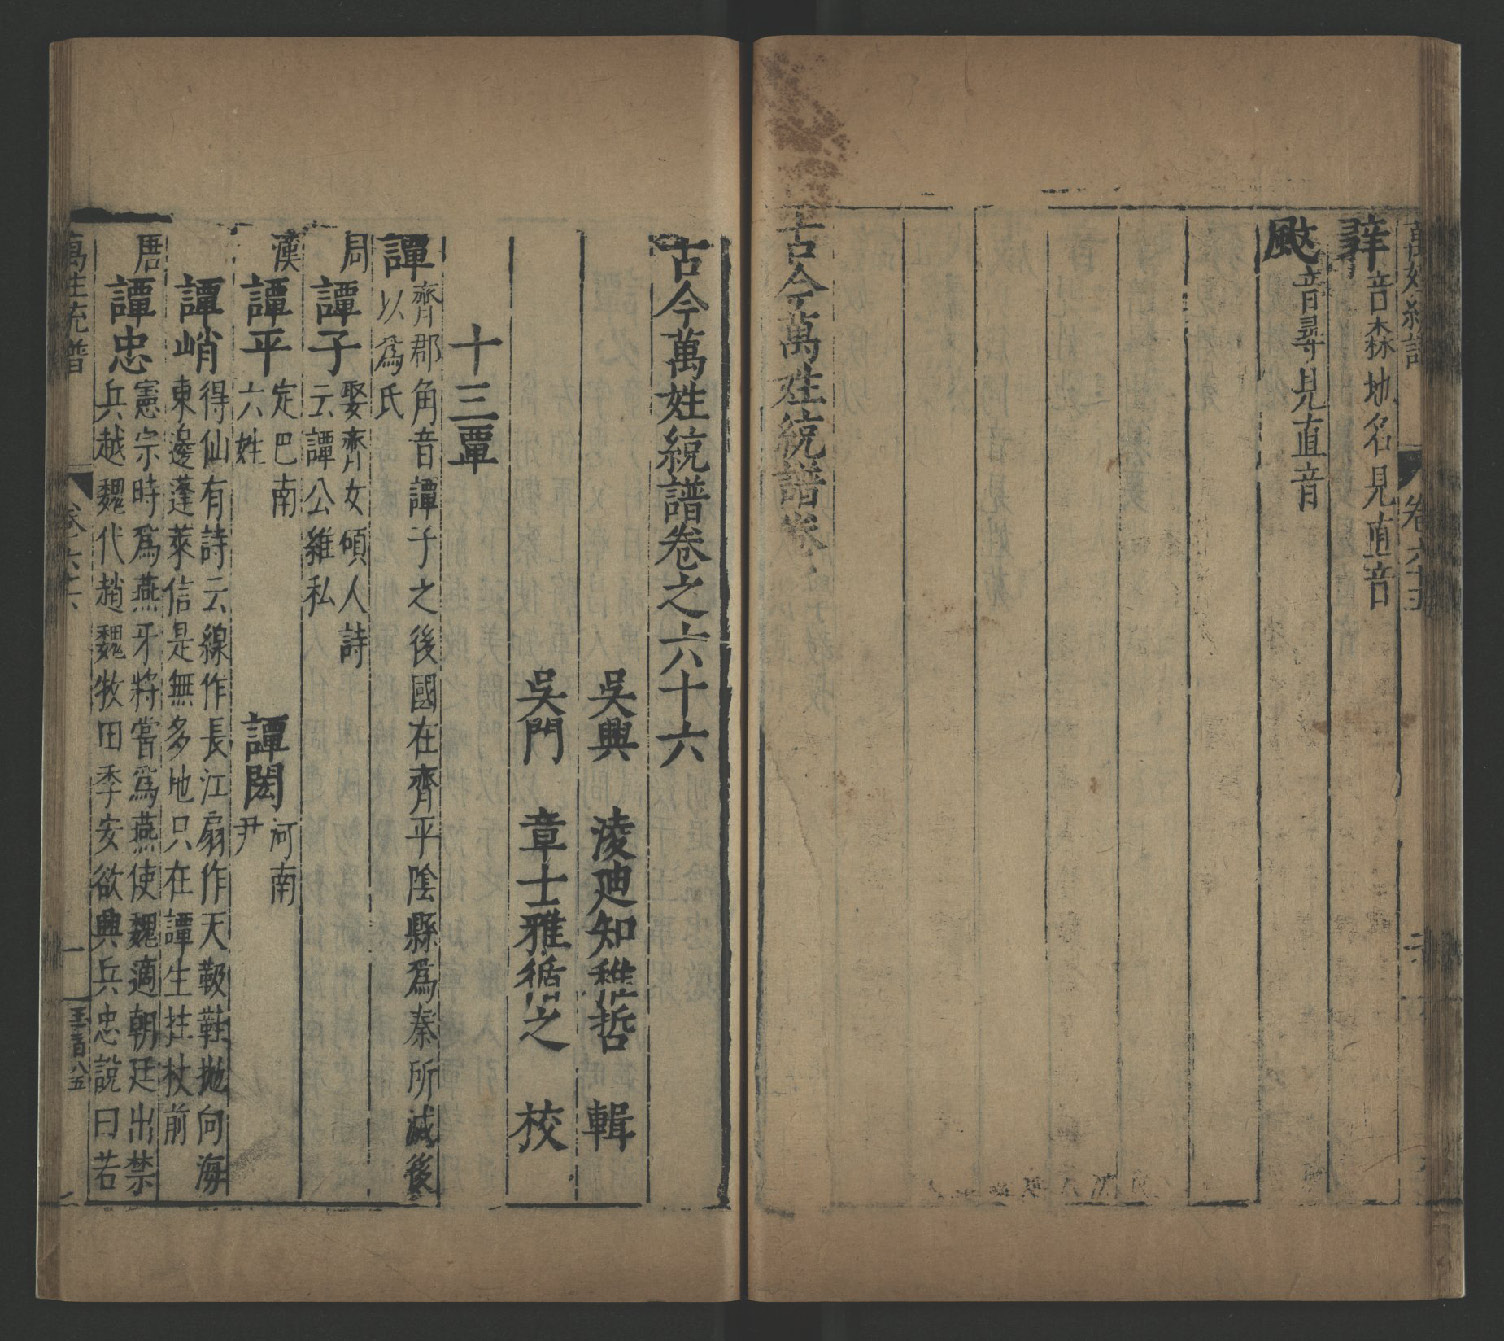 萬姓統譜 卷六十五
音森地名見直音
䫻音尋見直音
古今萬姓統譜卷
古今萬姓統譜卷之六十六
吳興 淩迪知稚哲 輯
吳門 章士雅循之 校
十三覃
譚齊郡角音譚子之後國在齊平陰縣爲秦所滅後
以爲氏
周 譚子娶齊女碩人詩
云譚公維私
漢 譚平定巴南
六姓
譚閎河南
尹
譚峭得仙有詩云線作長江扇作天靸鞋抛向海
東邊蓬萊信是無多地只在譚生拄杖前
唐 譚忠憲宗時爲燕牙將嘗爲燕使魏適朝廷出禁
兵越魏伐趙魏牧田季安欲興兵忠說曰若
萬姓統譜 卷六十六 一